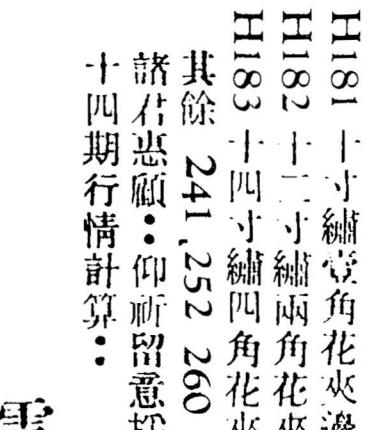 H181 十寸繡壹角花夾邊
H182 十二寸繡兩角花夾
H183 十四寸繡四角花夾
其餘 241,252 260
諸君惠顧：仰祈留意按
十四期行情計算：